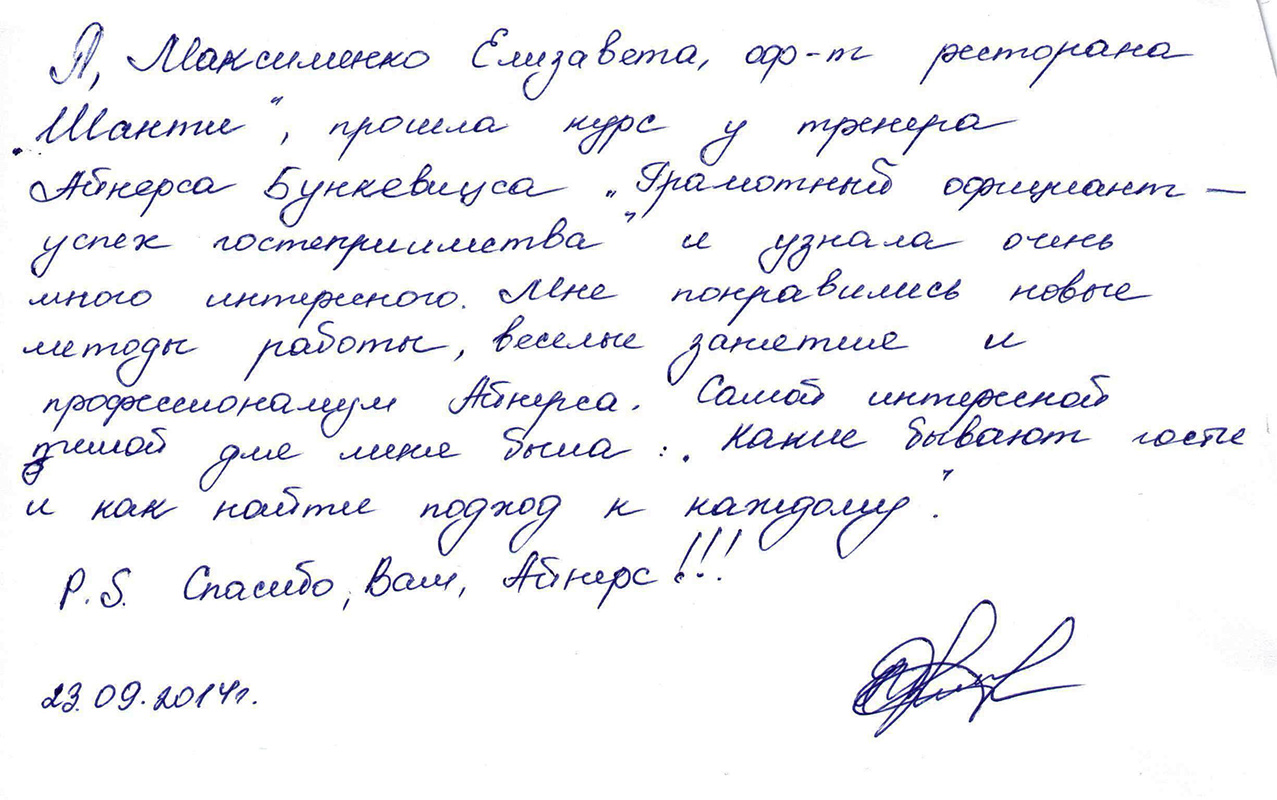 Я, Максименко Елизавета, оф-т ресторана
„Шанти", прошла курс у тренера
Айнерса Бункевицса „Грамотный официант —
успех гостеприимства" и узнала очень
много интересного. Мне понравились новые
методы работы, веселые занятия и
профессионализм Айнерса. Самой интересной
темой для меня была: „Какие бывают гости
и как найти подход к каждому".
P.S. Спасибо, Вам, Айнерс!!!
23.09.2014г.